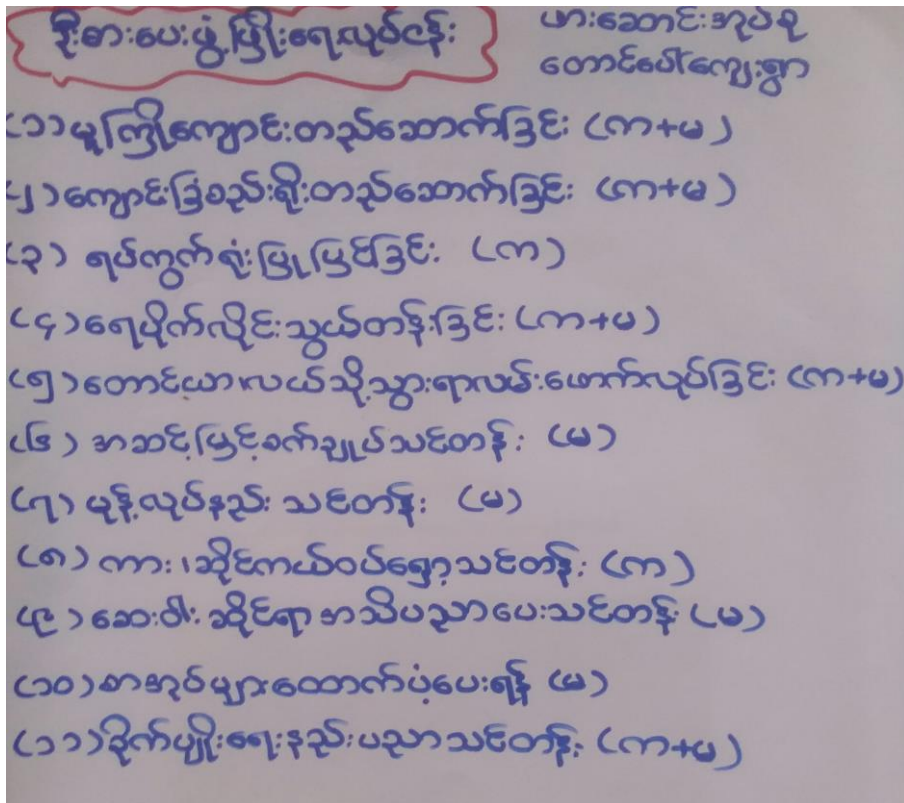 ဦးစားပေးဖွံ့ဖြိုးရေးလုပ်ငန်း
ဖားဆောင်းအုပ်စု
တောင်ပေါ်ကျေးရွာ
(၁)မူကြိုကျောင်းတည်ဆောက်ခြင်း (က+မ)
(၂)ကျောင်းခြံစည်းရိုးတည်ဆောက်ခြင်း (က+မ)
(၃) ရပ်ကွက်ရုံးပြုပြင်ခြင်း (က)
(၄)ရေပိုက်လိုင်းသွယ်တန်းခြင်း (က+မ)
(၅)တောင်ယာ၊လယ်သို့သွားရာလမ်းဖောက်လုပ်ခြင်း (က+မ)
(၆) အဆင့်မြှင့်စက်ချုပ်သင်တန်း (မ)
(၇) မုန့်လုပ်နည်း သင်တန်း (မ)
(၈) ကား၊ဆိုင်ကယ်ဝပ်ရှော့သင်တန်း (က)
(၉)ဆေးဝါးဆိုင်ရာအသိပညာပေးသင်တန်း (မ)
(၁၀)စာအုပ်များထောက်ပံ့ပေးရန် (မ)
(၁၁)စိုက်ပျိုးရေးနည်းပညာသင်တန်း (က+မ)